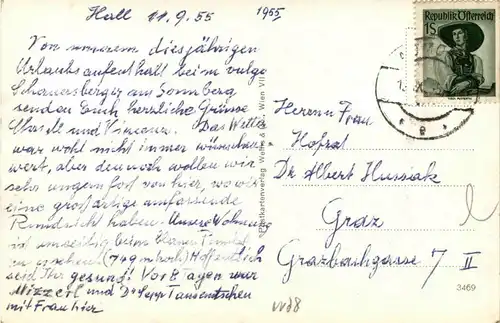 Hall 11.9.55
1955
Von unserem diesjährigen
Urlaubsaufenthalt beim vulgo
Schauersberger am Sonnberg
senden Euch herzliche Grüsse
und Das Wetter
war wohl nicht immer wünschens
wert, aber dennoch wollen wir
sehr ungern fort von hier, wo wir
eine großartige umfassende
Rundsicht haben. Unsere Wohnung
ist einseitig beim
zu sehen. (749 m hoch) Hoffentlich
seid Ihr gesund! Vor 8 Tagen war
und Dr Sepp Tausentschen
mit Frau hier
Postkartenverlag Wien VII
Republik Österreich
1S
Herrn u Frau
Hofrat
Dr Albert Hussiak
Graz
Grazbachgasse 7 II
3469